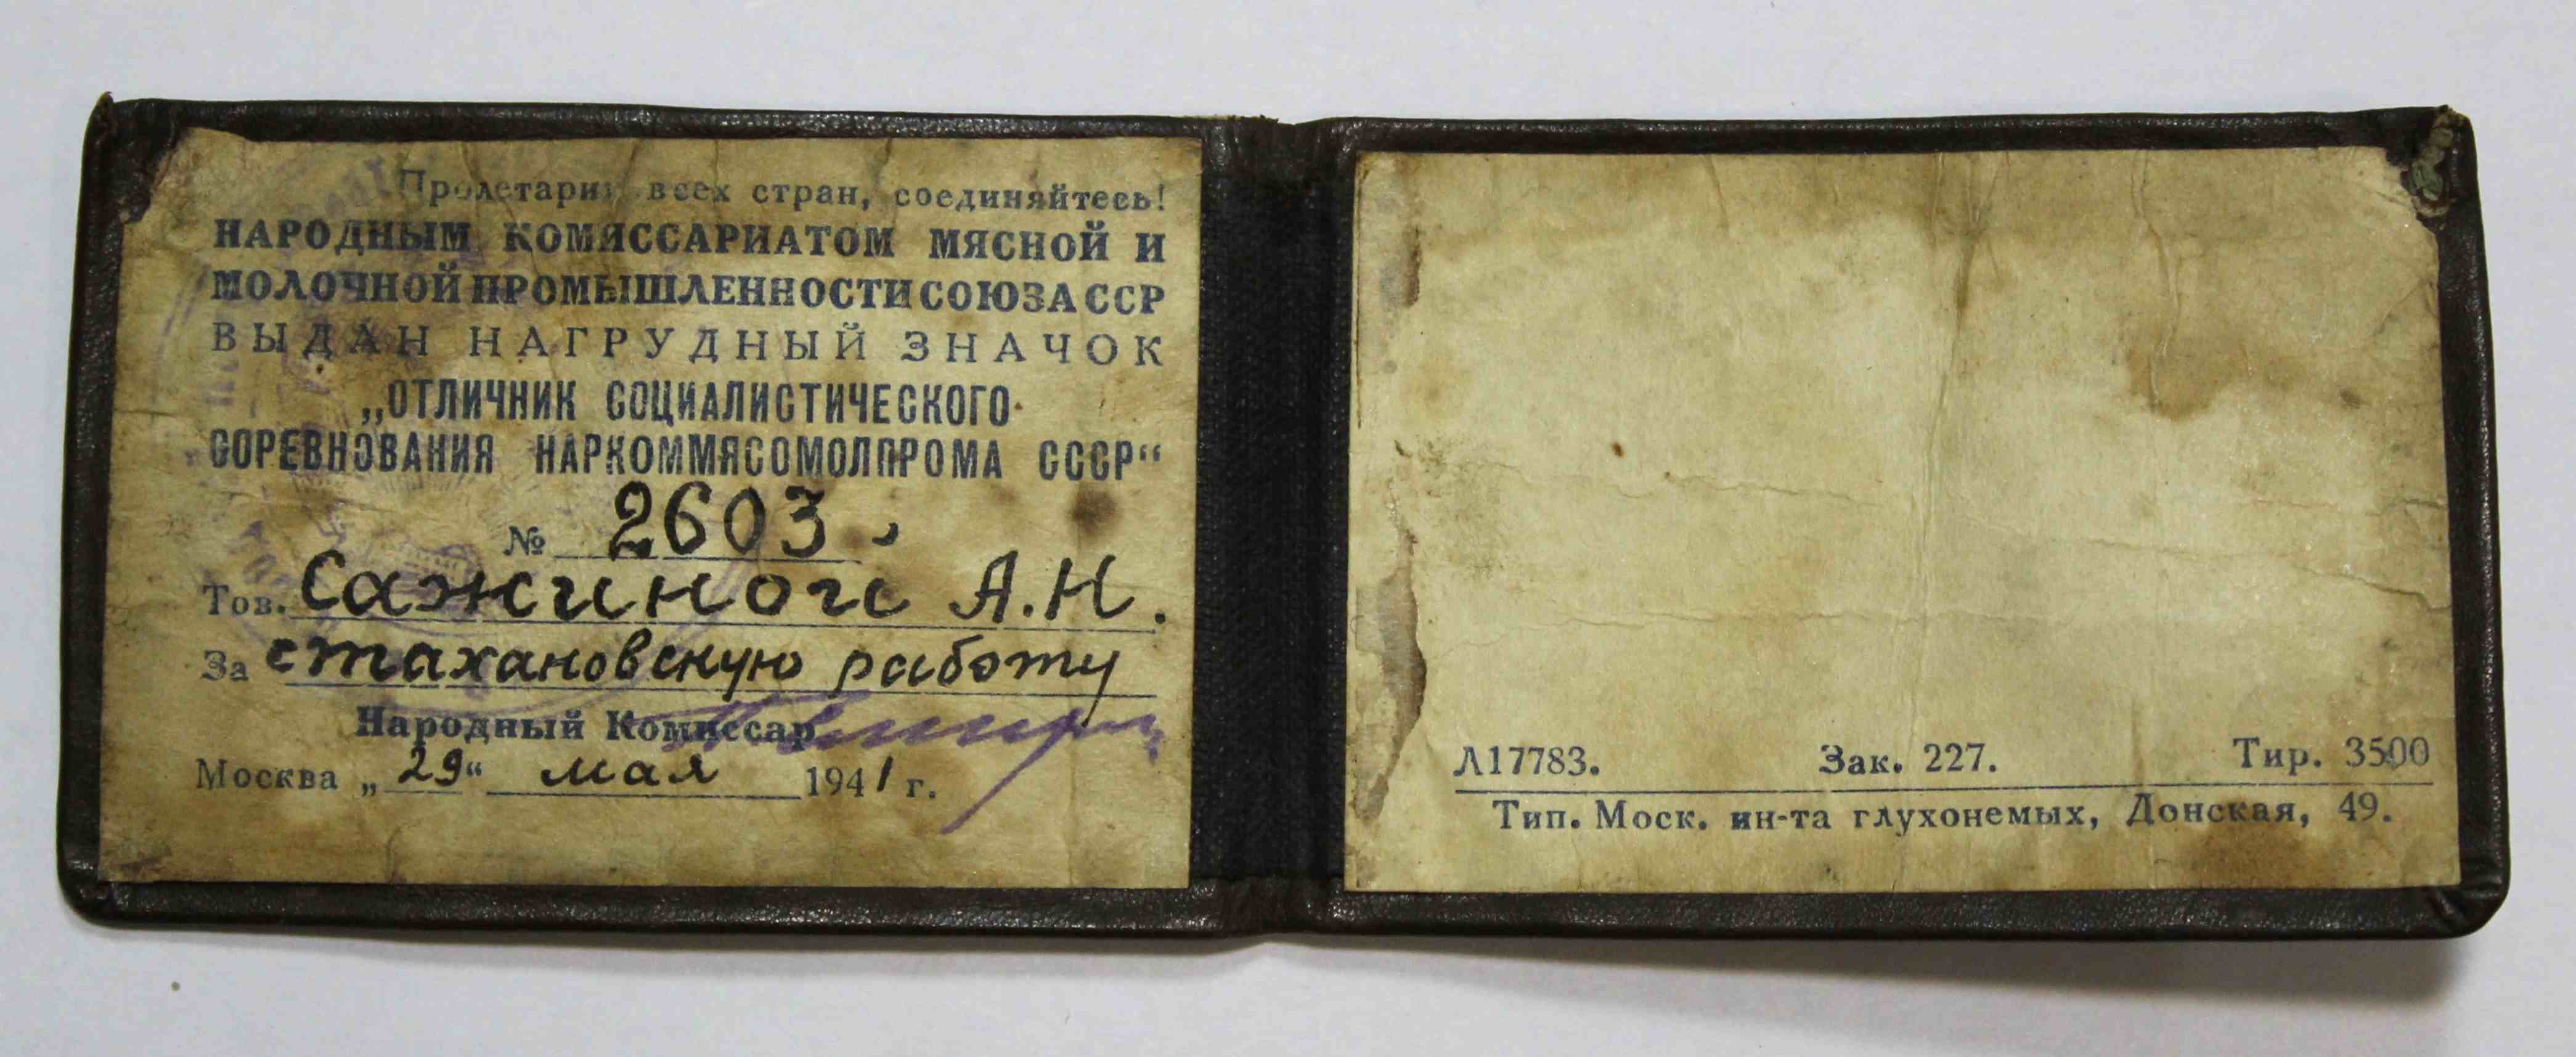 Пролетарии всех стран, соединяйтесь!
НАРОДНЫМ КОМИССАРИАТОМ МЯСНОЙ И
МОЛОЧНОЙ ПРОМЫШЛЕННОСТИ СОЮЗА ССР
ВЫДАН НАГРУДНЫЙ ЗНАЧОК
„ОТЛИЧНИК СОЦИАЛИСТИЧЕСКОГО
СОРЕВНОВАНИЯ НАРКОММЯСОМОЛПРОМА СССР“
№ 2603
Тов. Сажиной А.Н.
За стахановскую работу
Народный Комиссар
Москва „29“ мая 1941 г.
Л17783. Зак. 227. Тир. 3500
Тип. Моск. ин-та глухонемых, Донская, 49.